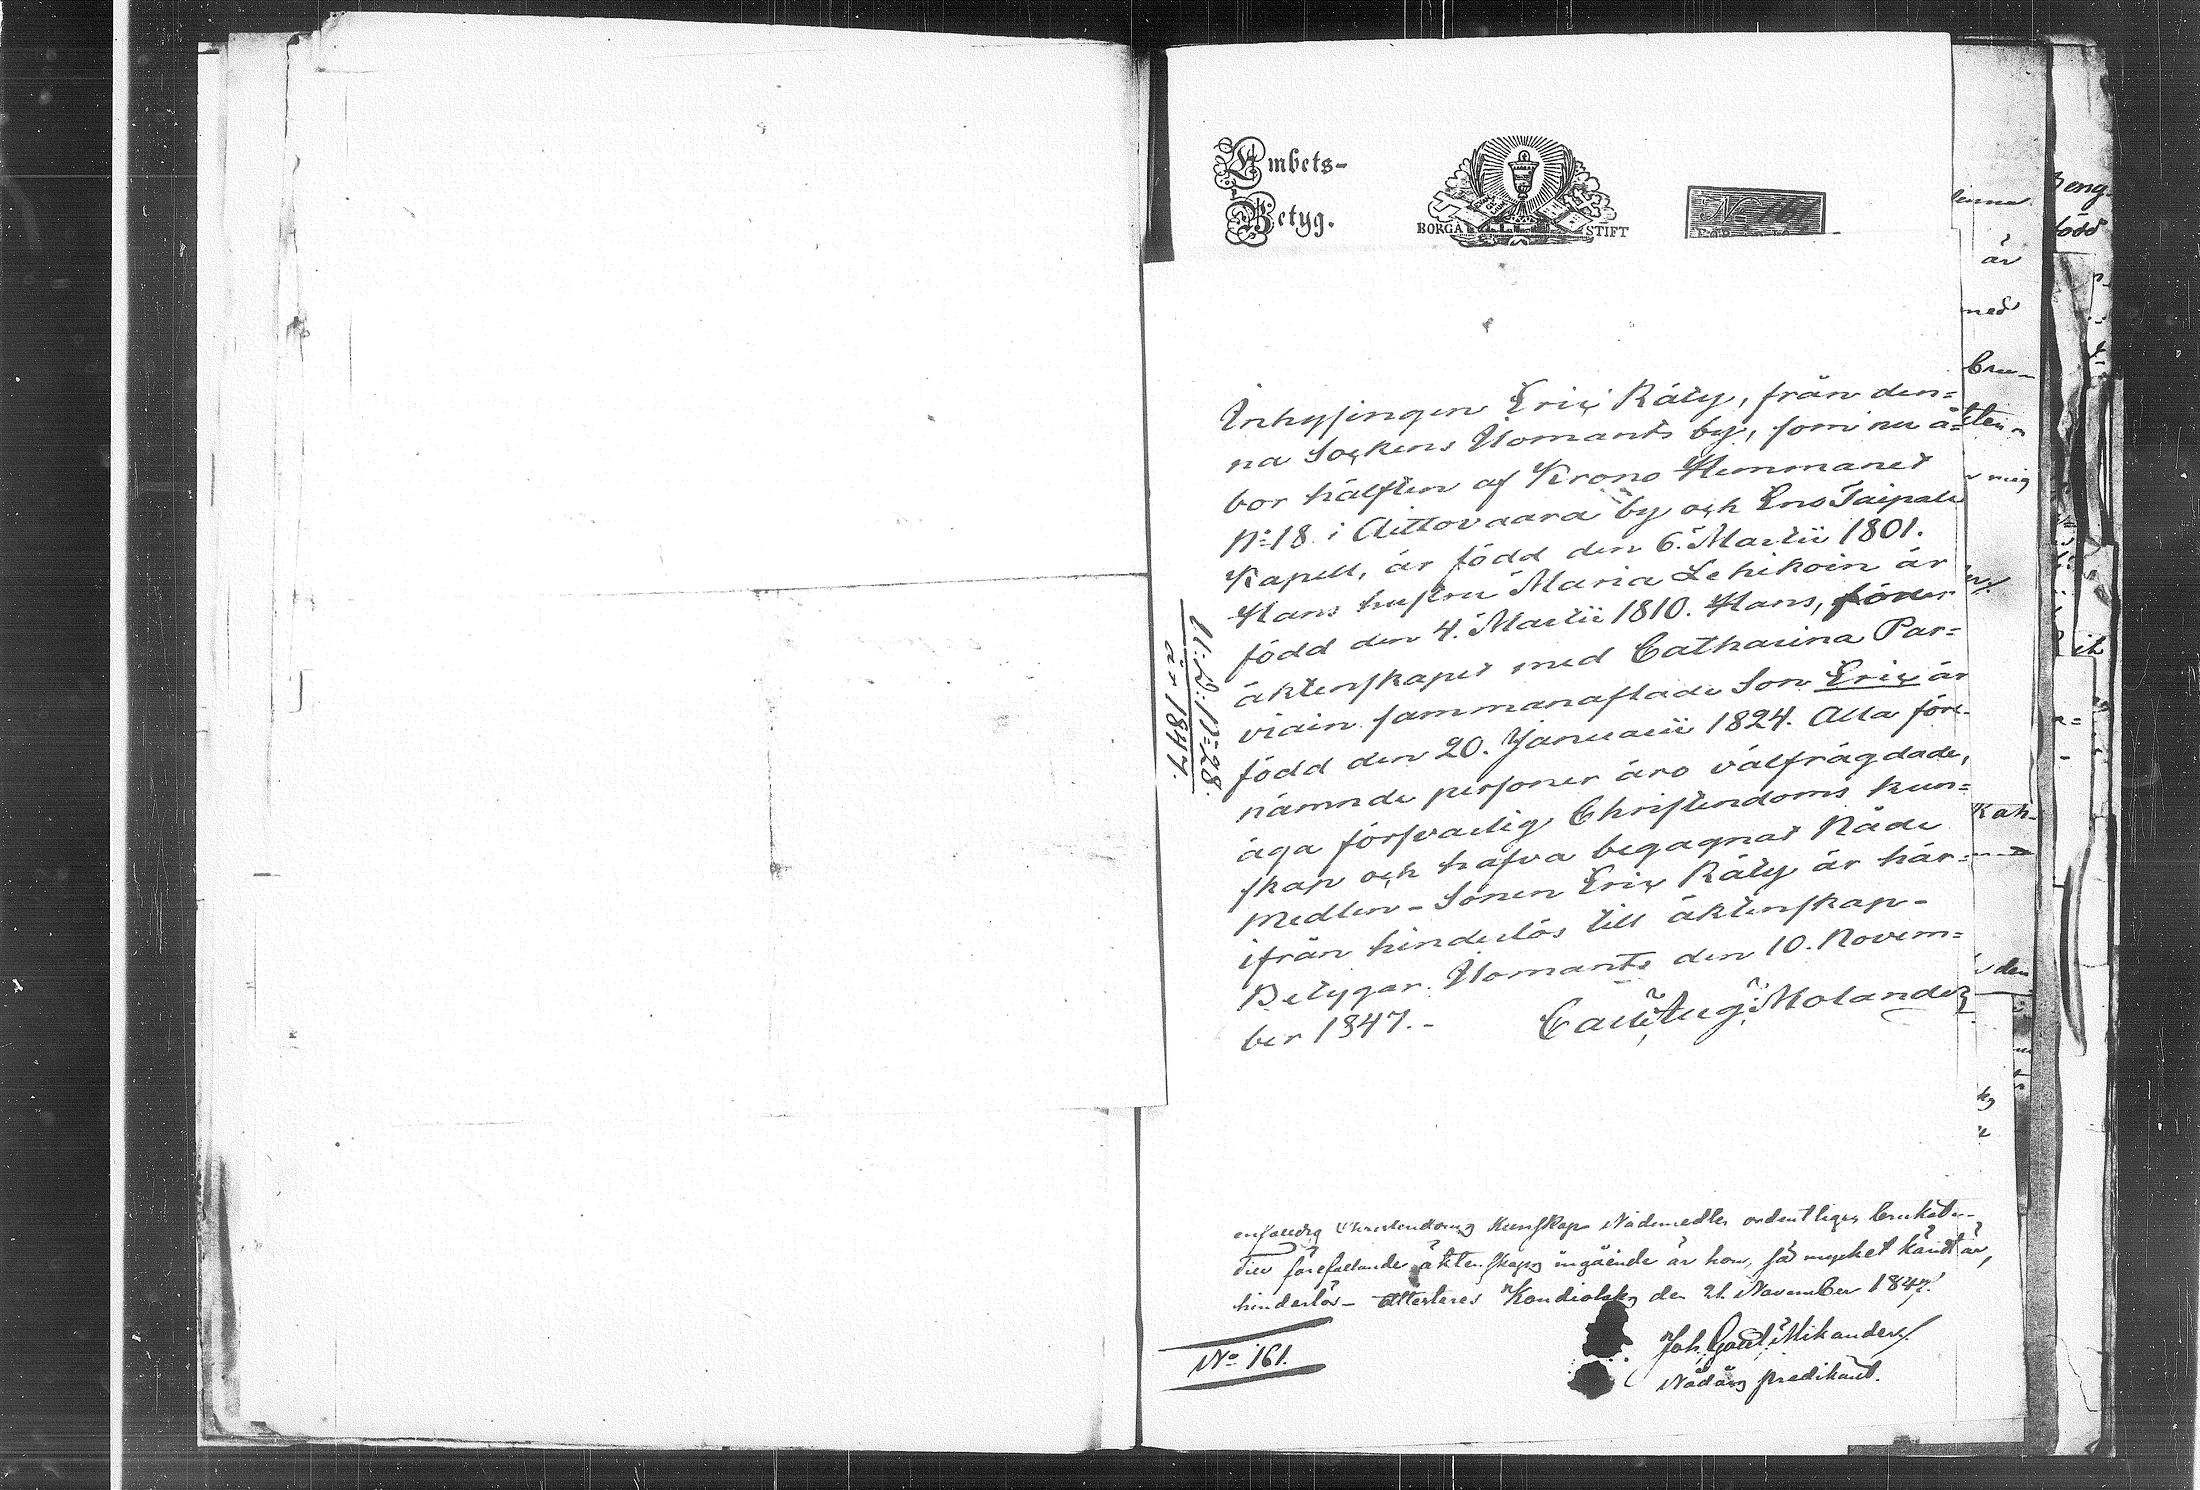 Embets-
Betyg.
BORGÅ STIFT
No 161
Inhysingen Eric Räty, från den=
na Sockens Ilomants by, som nu å=
bor hälften af Krono Hemmanet
No 18 i Aittovaara by och Eno Taipale
Kapell, är född den 6. Martii 1801.
Hans hustru Maria Lehikoin är
född den 4. Martii 1810. Hans, förr
äktenskapet med Catharina Par=
viain sammanaflade Son Eric är
född den 20. Januarii 1824. Alla före-
nämnde personer äro välfrägdade,
äga försvarlig Christendoms kun=
skap och hafva begagnat Nåde
medlen - Sonen Eric Räty är här=
ifrån hinderlös till äktenskap -
Betygar. Ilomants den 10. Novem=
ber 1847. -
Carl Aug. Molander
U. L. No 28.
år 1847.
enfaldig Christendoms Kunskap Nådemedlen ordentligen brukat. -
Till förefallande äktenskaps ingående är hon, så mycket kändt är,
hinderlös - Attesteras Kondiolaks den 21. November 1847.
Joh. Gust. Mikander
Nådårs predikant.
No 161.
är
med
mig
Kah-
den
född